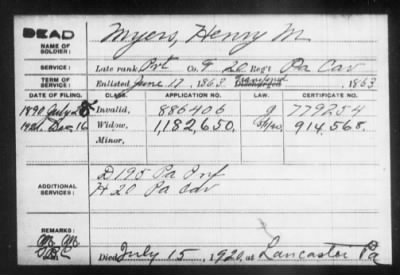 DEAD
NAME OF SOLDIER: Myers, Henry M
SERVICE: Late rank, Prt Co. 20 Reg't Pa Cav
TERM OF SERVICE: Enlisted June 17, 1863 Discharged, 1863
DATE OF FILING. CLASS. APPLICATION NO. LAW. CERTIFICATE NO.
1890 July Invalid, 886406 779254
Dec 16 Widow, 1,182,650. 914,568.
Minor,
ADDITIONAL SERVICES:
D 195 Pa Inf
H 20 Pa Cav
REMARKS:
Died July 15, 1920, at Lancaster Pa